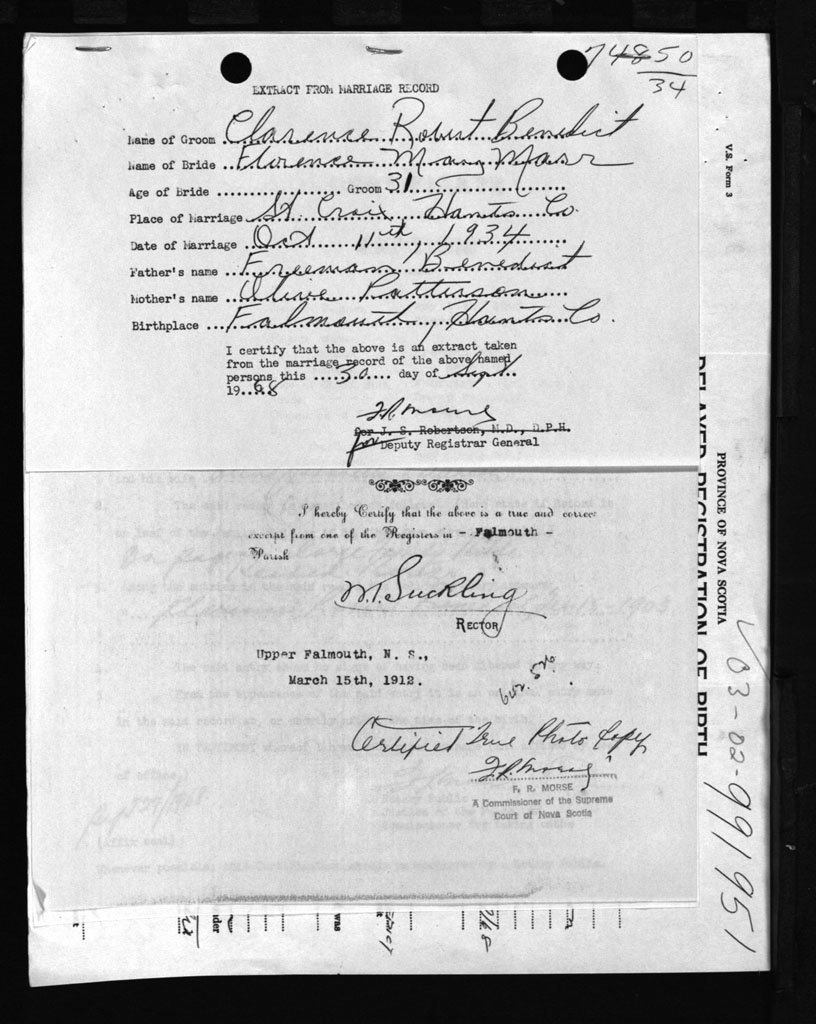 74850
34
EXTRACT FROM MARRIAGE RECORD
Name of Groom Clarence Robert Benedict
Name of Bride Florence May Marr
Age of Bride .................... Groom 31 ....................
Place of Marriage St. Croix, Hants Co.
Date of Marriage Oct 11th, 1934
Father's name Freeman Benedict
Mother's name Olive Patterson
Birthplace Falmouth, Hants Co.
I certify that the above is an extract taken
from the marriage record of the above named
persons this .... 30 .... day of Sept
19 68
F.R. Morse
for J. S. Robertson, M.D., D.P.H.
for Deputy Registrar General
I hereby Certify that the above is a true and correc
excerpt from one of the Registers in - Falmouth -
Parish
W.T. Suckling
RECTOR
Upper Falmouth, N. S.,
March 15th, 1912.
Certified True Photo Copy
F.R. Morse
F. R. MORSE
A Commissioner of the Supreme
Court of Nova Scotia
V.S. Form 3
PROVINCE OF NOVA SCOTIA
DELAYED REGISTRATION OF BIRTH
03-02-991951
was